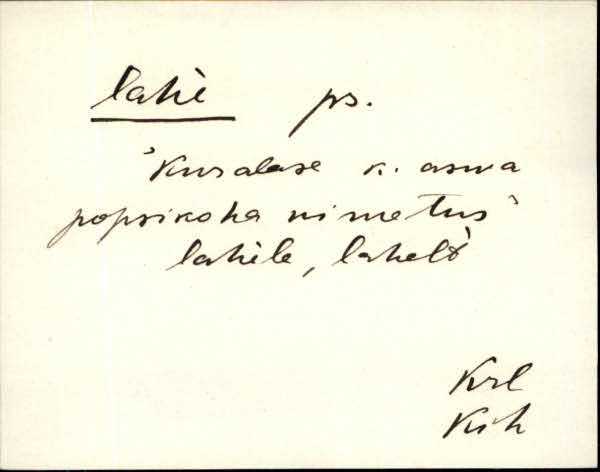 lahè ps.
"Kuralase k. asuva
popsikoha nimetus"
lahèle, lahelt
Krl
Krk